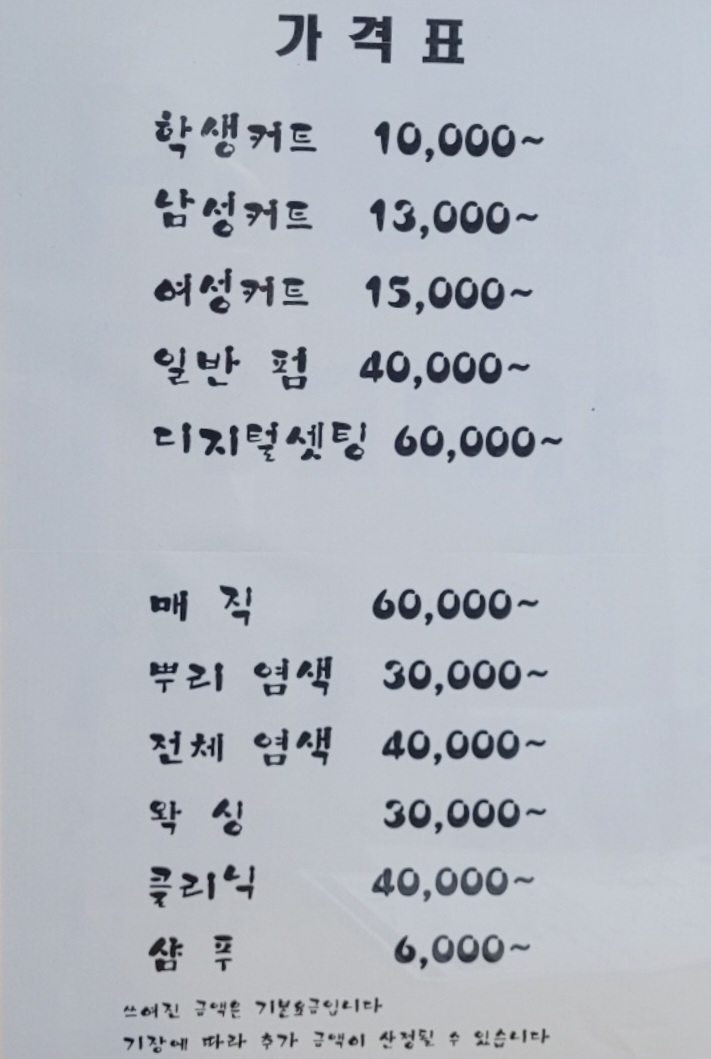 가격표
학생커트 10,000~
남성커트 13,000~
여성커트 15,000~
일반 펌 40,000~
디지털셋팅 60,000~
매 직 60,000~
뿌리 염색 30,000~
전체 염색 40,000~
왁 싱 30,000~
클리닉 40,000~
샴 푸 6,000~
쓰여진 금액은 기본요금입니다
기장에 따라 추가 금액이 산정될 수 있습니다